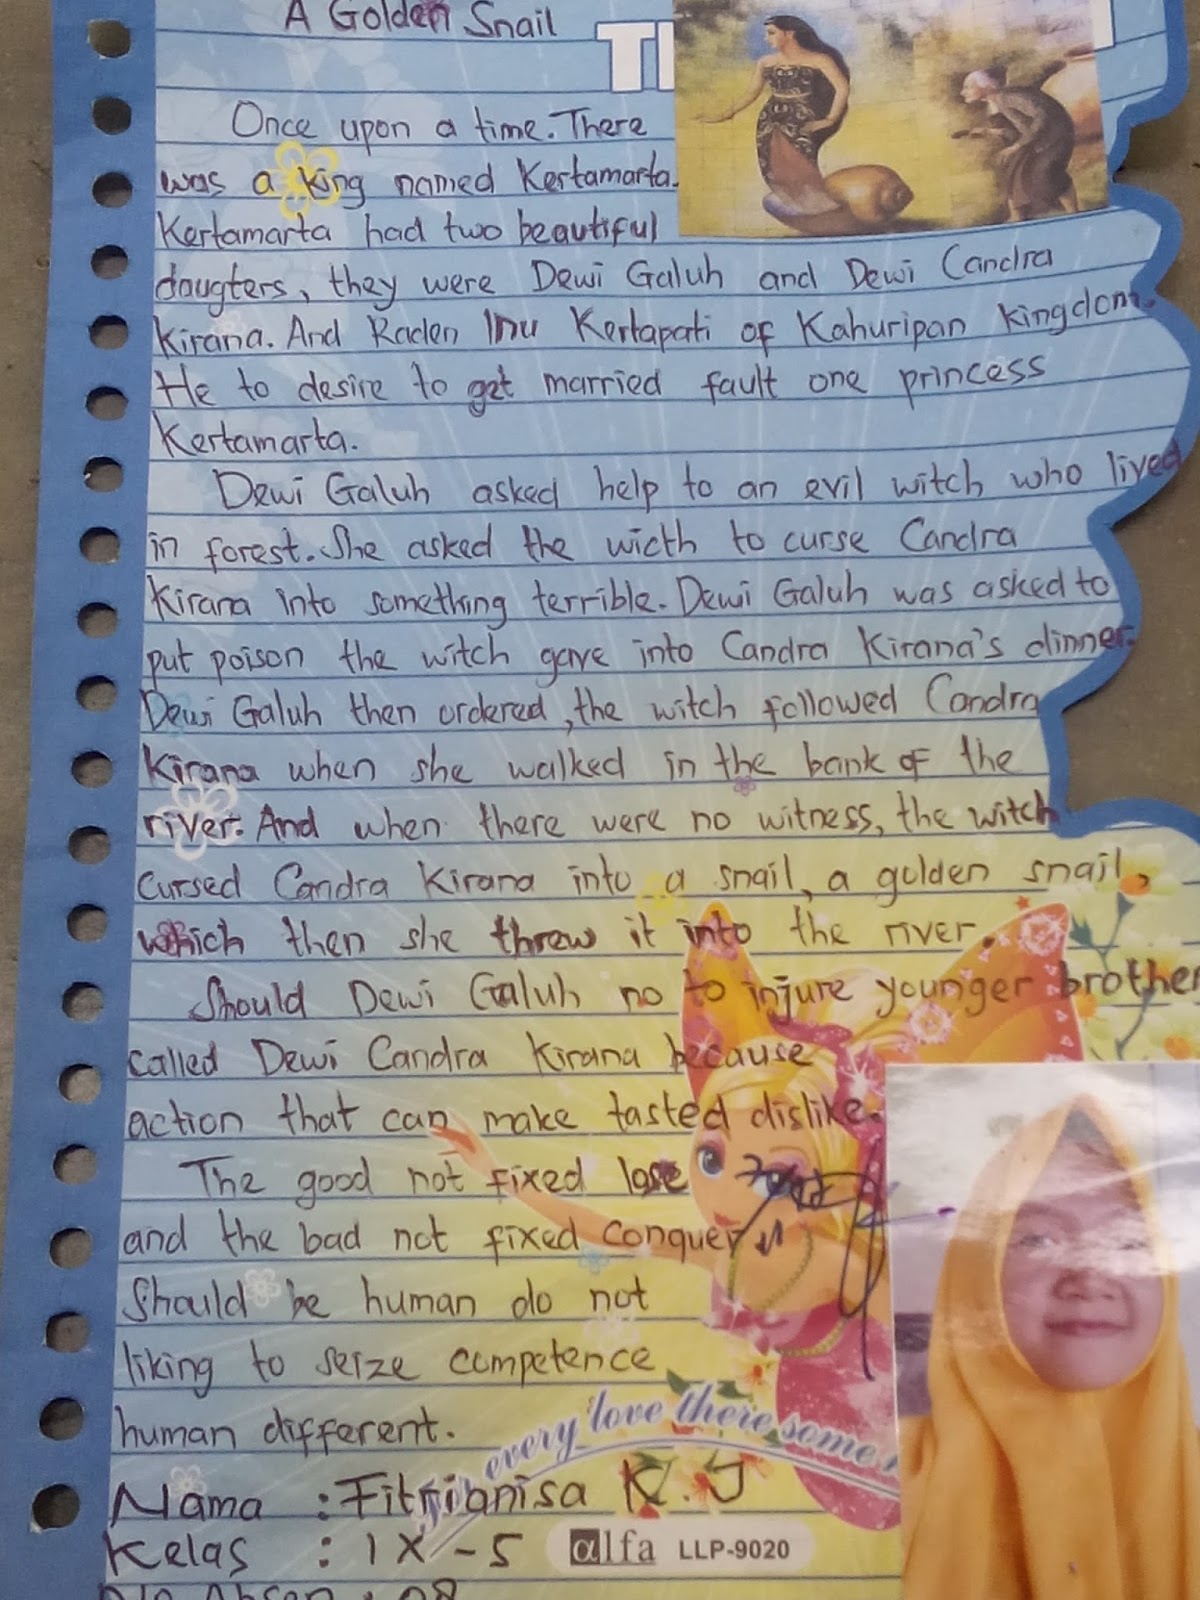 A Golden Snail
Once upon a time. There
was a king named Kertamarta.
Kertamarta had two beautiful
daugters, they were Dewi Galuh and Dewi Candra
Kirana. And Raden Inu Kertapati of Kahuripan Kingdom.
He to desire to get married fault one princess
Kertamarta.
Dewi Galuh asked help to an evil witch who lived
in forest. She asked the wicth to curse Candra
Kirana into something terrible. Dewi Galuh was asked to
put poison the witch gave into Candra Kirana's dinner.
Dewi Galuh then ordered, the witch followed Candra
Kirana when she walked in the bank of the
river. And when there were no witness, the witch
cursed Candra Kirana into a snail, a golden snail,
which then she threw it into the river.
Should Dewi Galuh no to injure younger brother
called Dewi Candra Kirana because
action that can make tasted dislike.
The good not fixed lose
and the bad not fixed conquer
Should be human do not
liking to seize competence
human different.
every love there some
Nama : Fitrianisa K.J
Kelas : IX-5
alfa LLP-9020
No Absen : 08